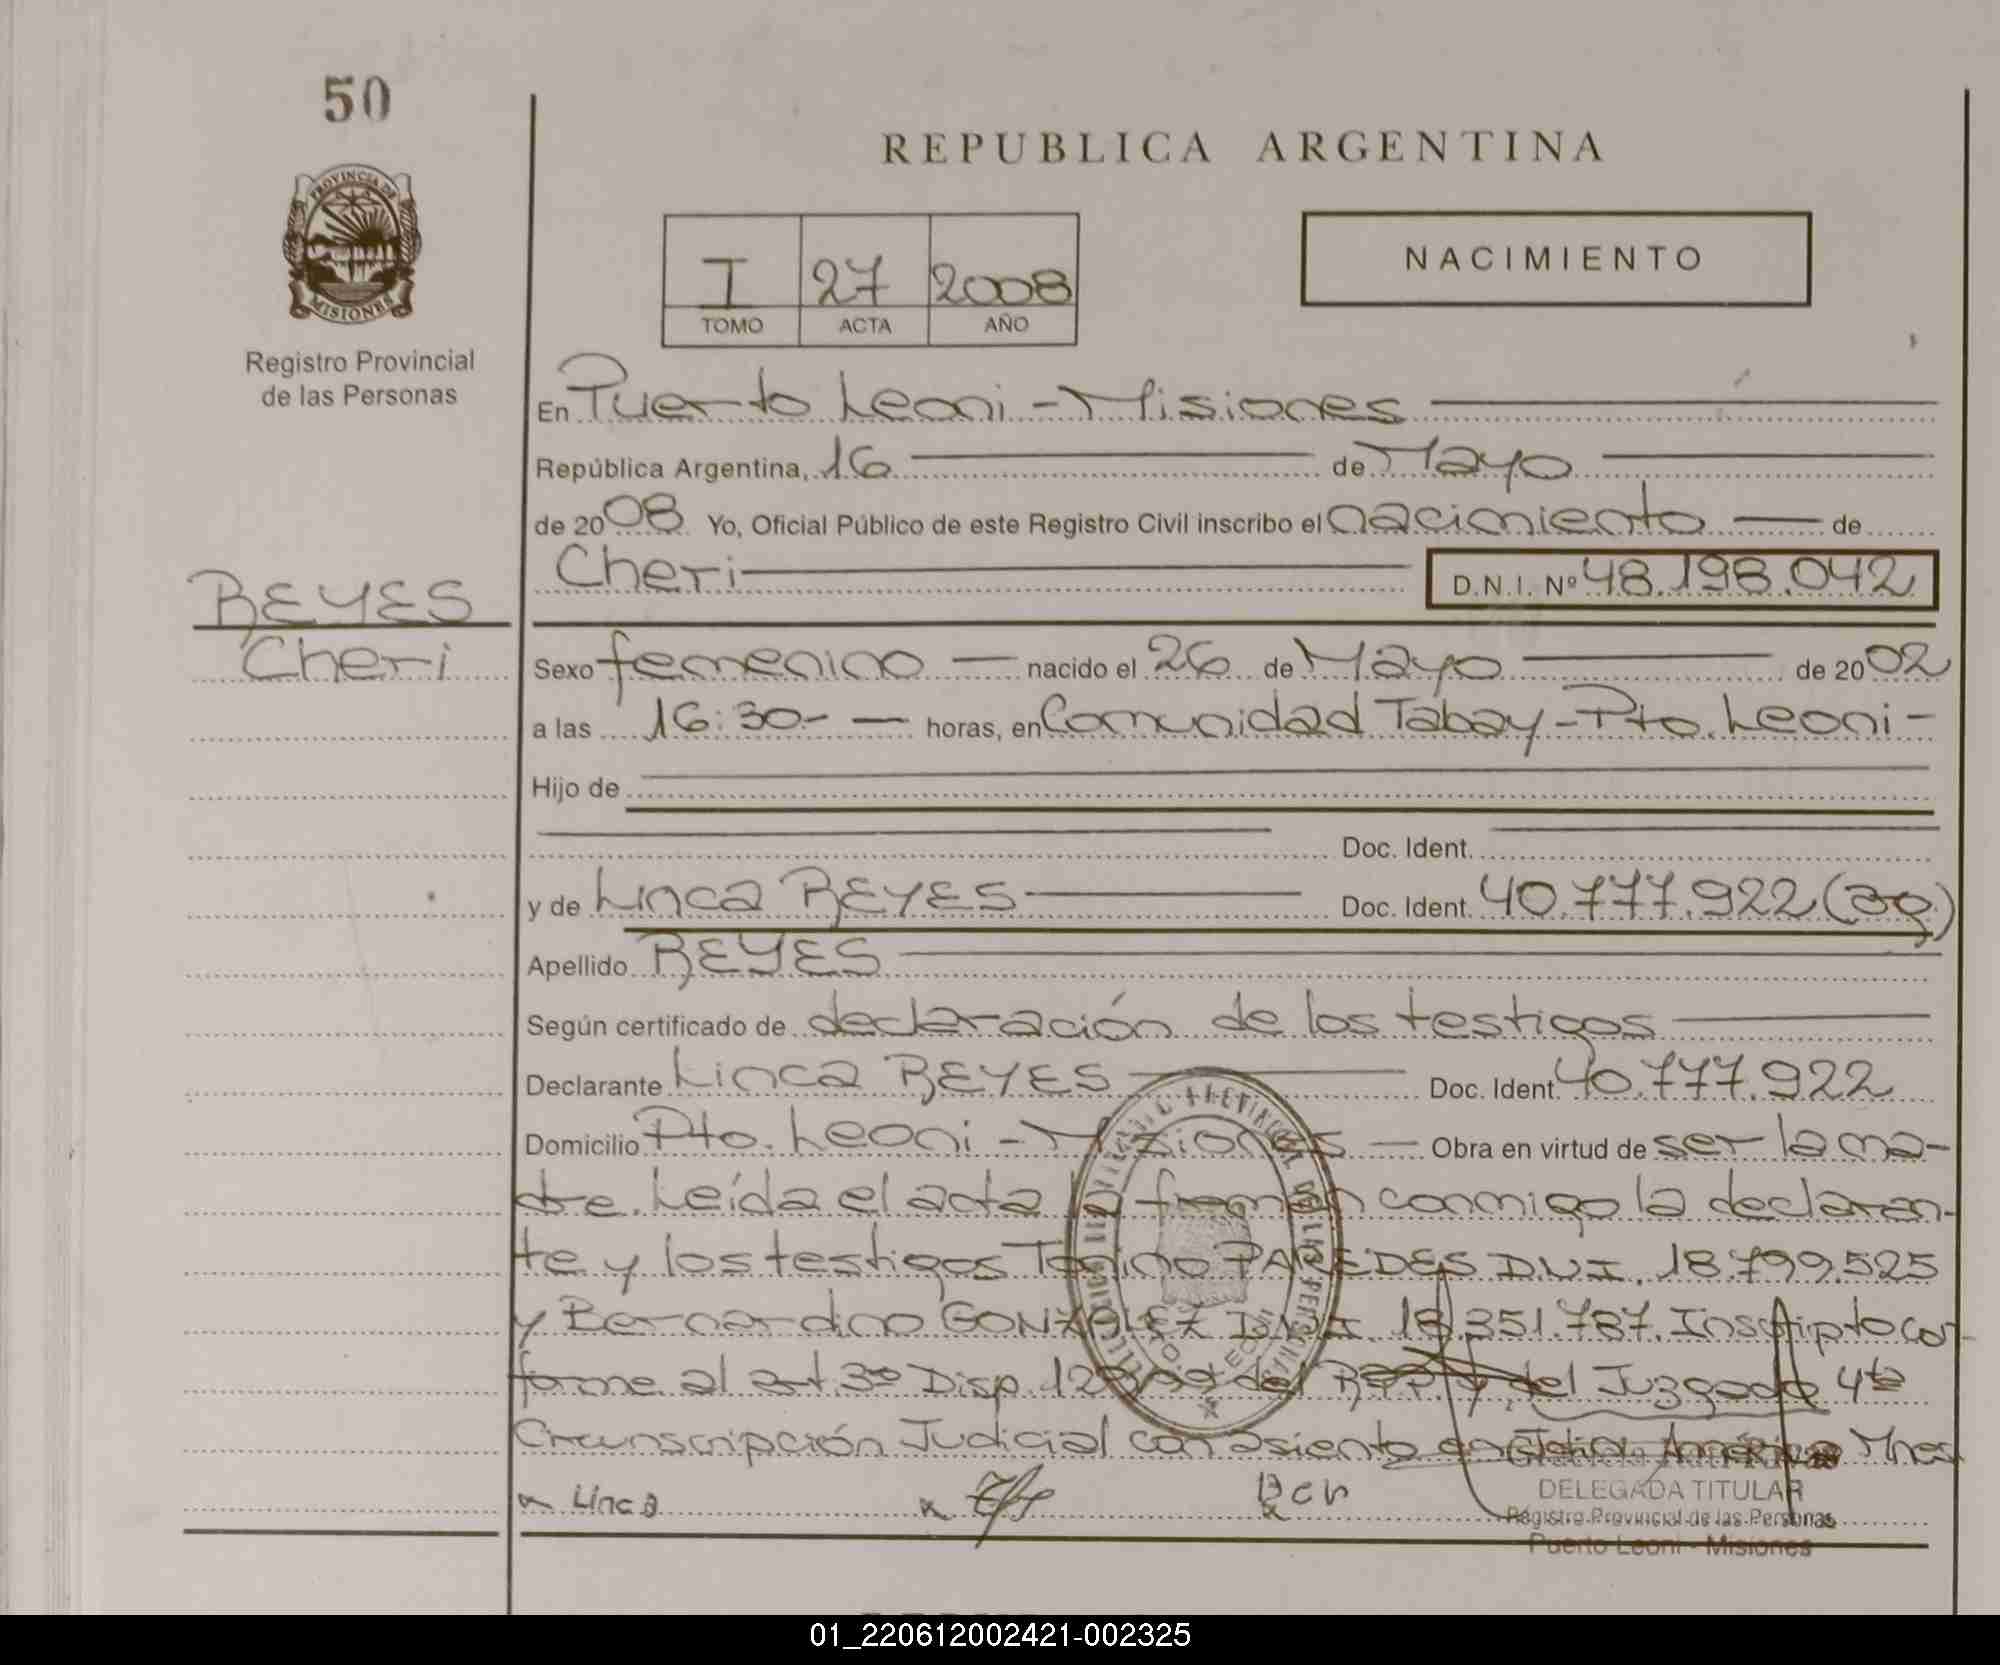 50
REPUBLICA ARGENTINA
PROVINCIA DE
MISIONES
Registro Provincial
de las Personas
I 27 2008
TOMO ACTA AÑO
NACIMIENTO
En Puerto Leoni - Misiones
República Argentina, 16 de Mayo
de 2008 Yo, Oficial Público de este Registro Civil inscribo el nacimiento de
Cheri D.N.I. Nº 48.198.042
REYES
Cheri
Sexo femenino nacido el 26 de Mayo de 2002
a las 16:30.- horas, en Comunidad Tabay - Pto. Leoni -
Hijo de
Doc. Ident.
y de Linca REYES Doc. Ident. 40.777.922
Apellido REYES
Según certificado de declaración de los testigos
Declarante Linca REYES Doc. Ident. 40.777.922
Domicilio Pto. Leoni - Misiones Obra en virtud de ser la ma-
dre. Leída el acta la firman conmigo la declaran-
te y los testigos PAREDES DNI. 18.799.525
y Bernardino GONZALEZ DNI. 18.351.787. Inscripto con
forme al art. 3º Disp. del del Juzgado 4ta
Circunscripción Judicial con asiento en Mnes
x Linca x x Ber
DELEGADA TITULAR
Registro Provincial de las Personas
Puerto Leoni - Misiones
01_220612002421-002325